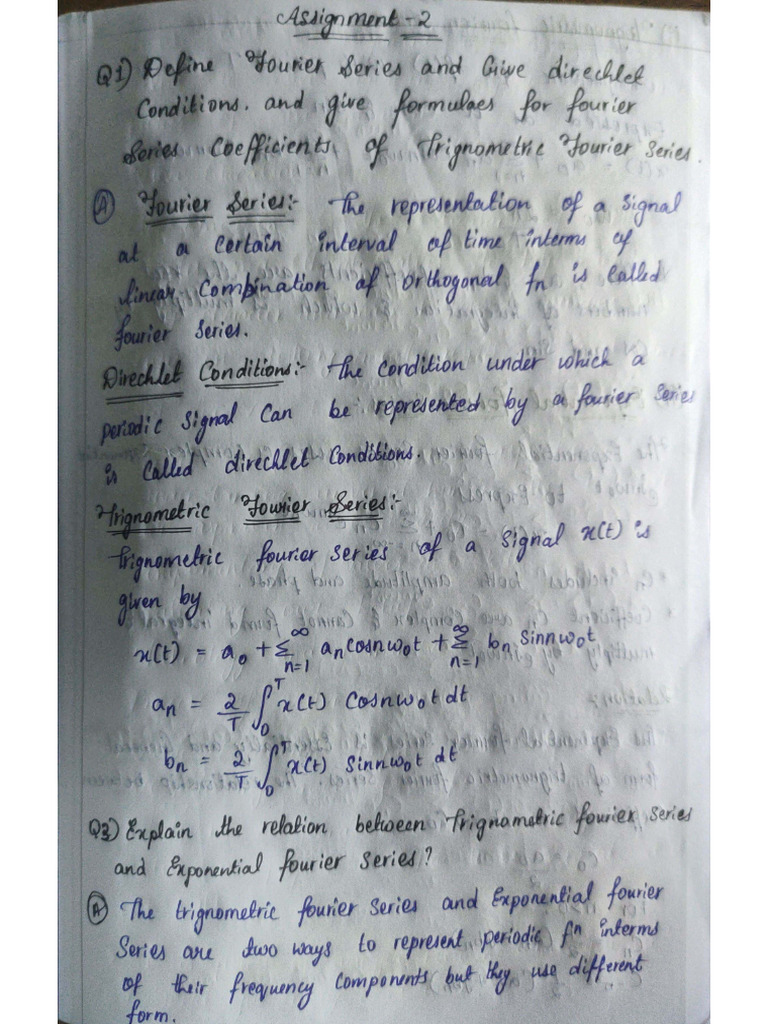 Assignment-2
Q1) Define Fourier Series and Give direchlet
Conditions. and give formulaes for fourier
Series Coefficients of Trignometric Fourier Series.
(A) Fourier Series:- The representation of a Signal
at a certain interval of time interms of
linear Combination of orthogonal fn is called
fourier Series.
Direchlet Conditions:- The condition under which a
periodic Signal Can be represented by a fourier Series
is Called direchlet Conditions.
Trignometric Fourier Series:-
Trignometric fourier series of a signal x(t) is
given by
x(t) = a₀ + Σ_{n=1}^{∞} aₙ cosnω₀t + Σ_{n=1}^{∞} bₙ Sinnω₀t
aₙ = 2/T ∫₀ᵀ x(t) Cosnω₀t dt
bₙ = 2/T ∫₀ᵀ x(t) Sinnω₀t dt
Q3) Explain the relation between Trignometric fourier series
and Exponential fourier Series?
(A) The trignometric fourier Series and Exponential fourier
Series are two ways to represent periodic fn interms
of their frequency Components but they use different
form.